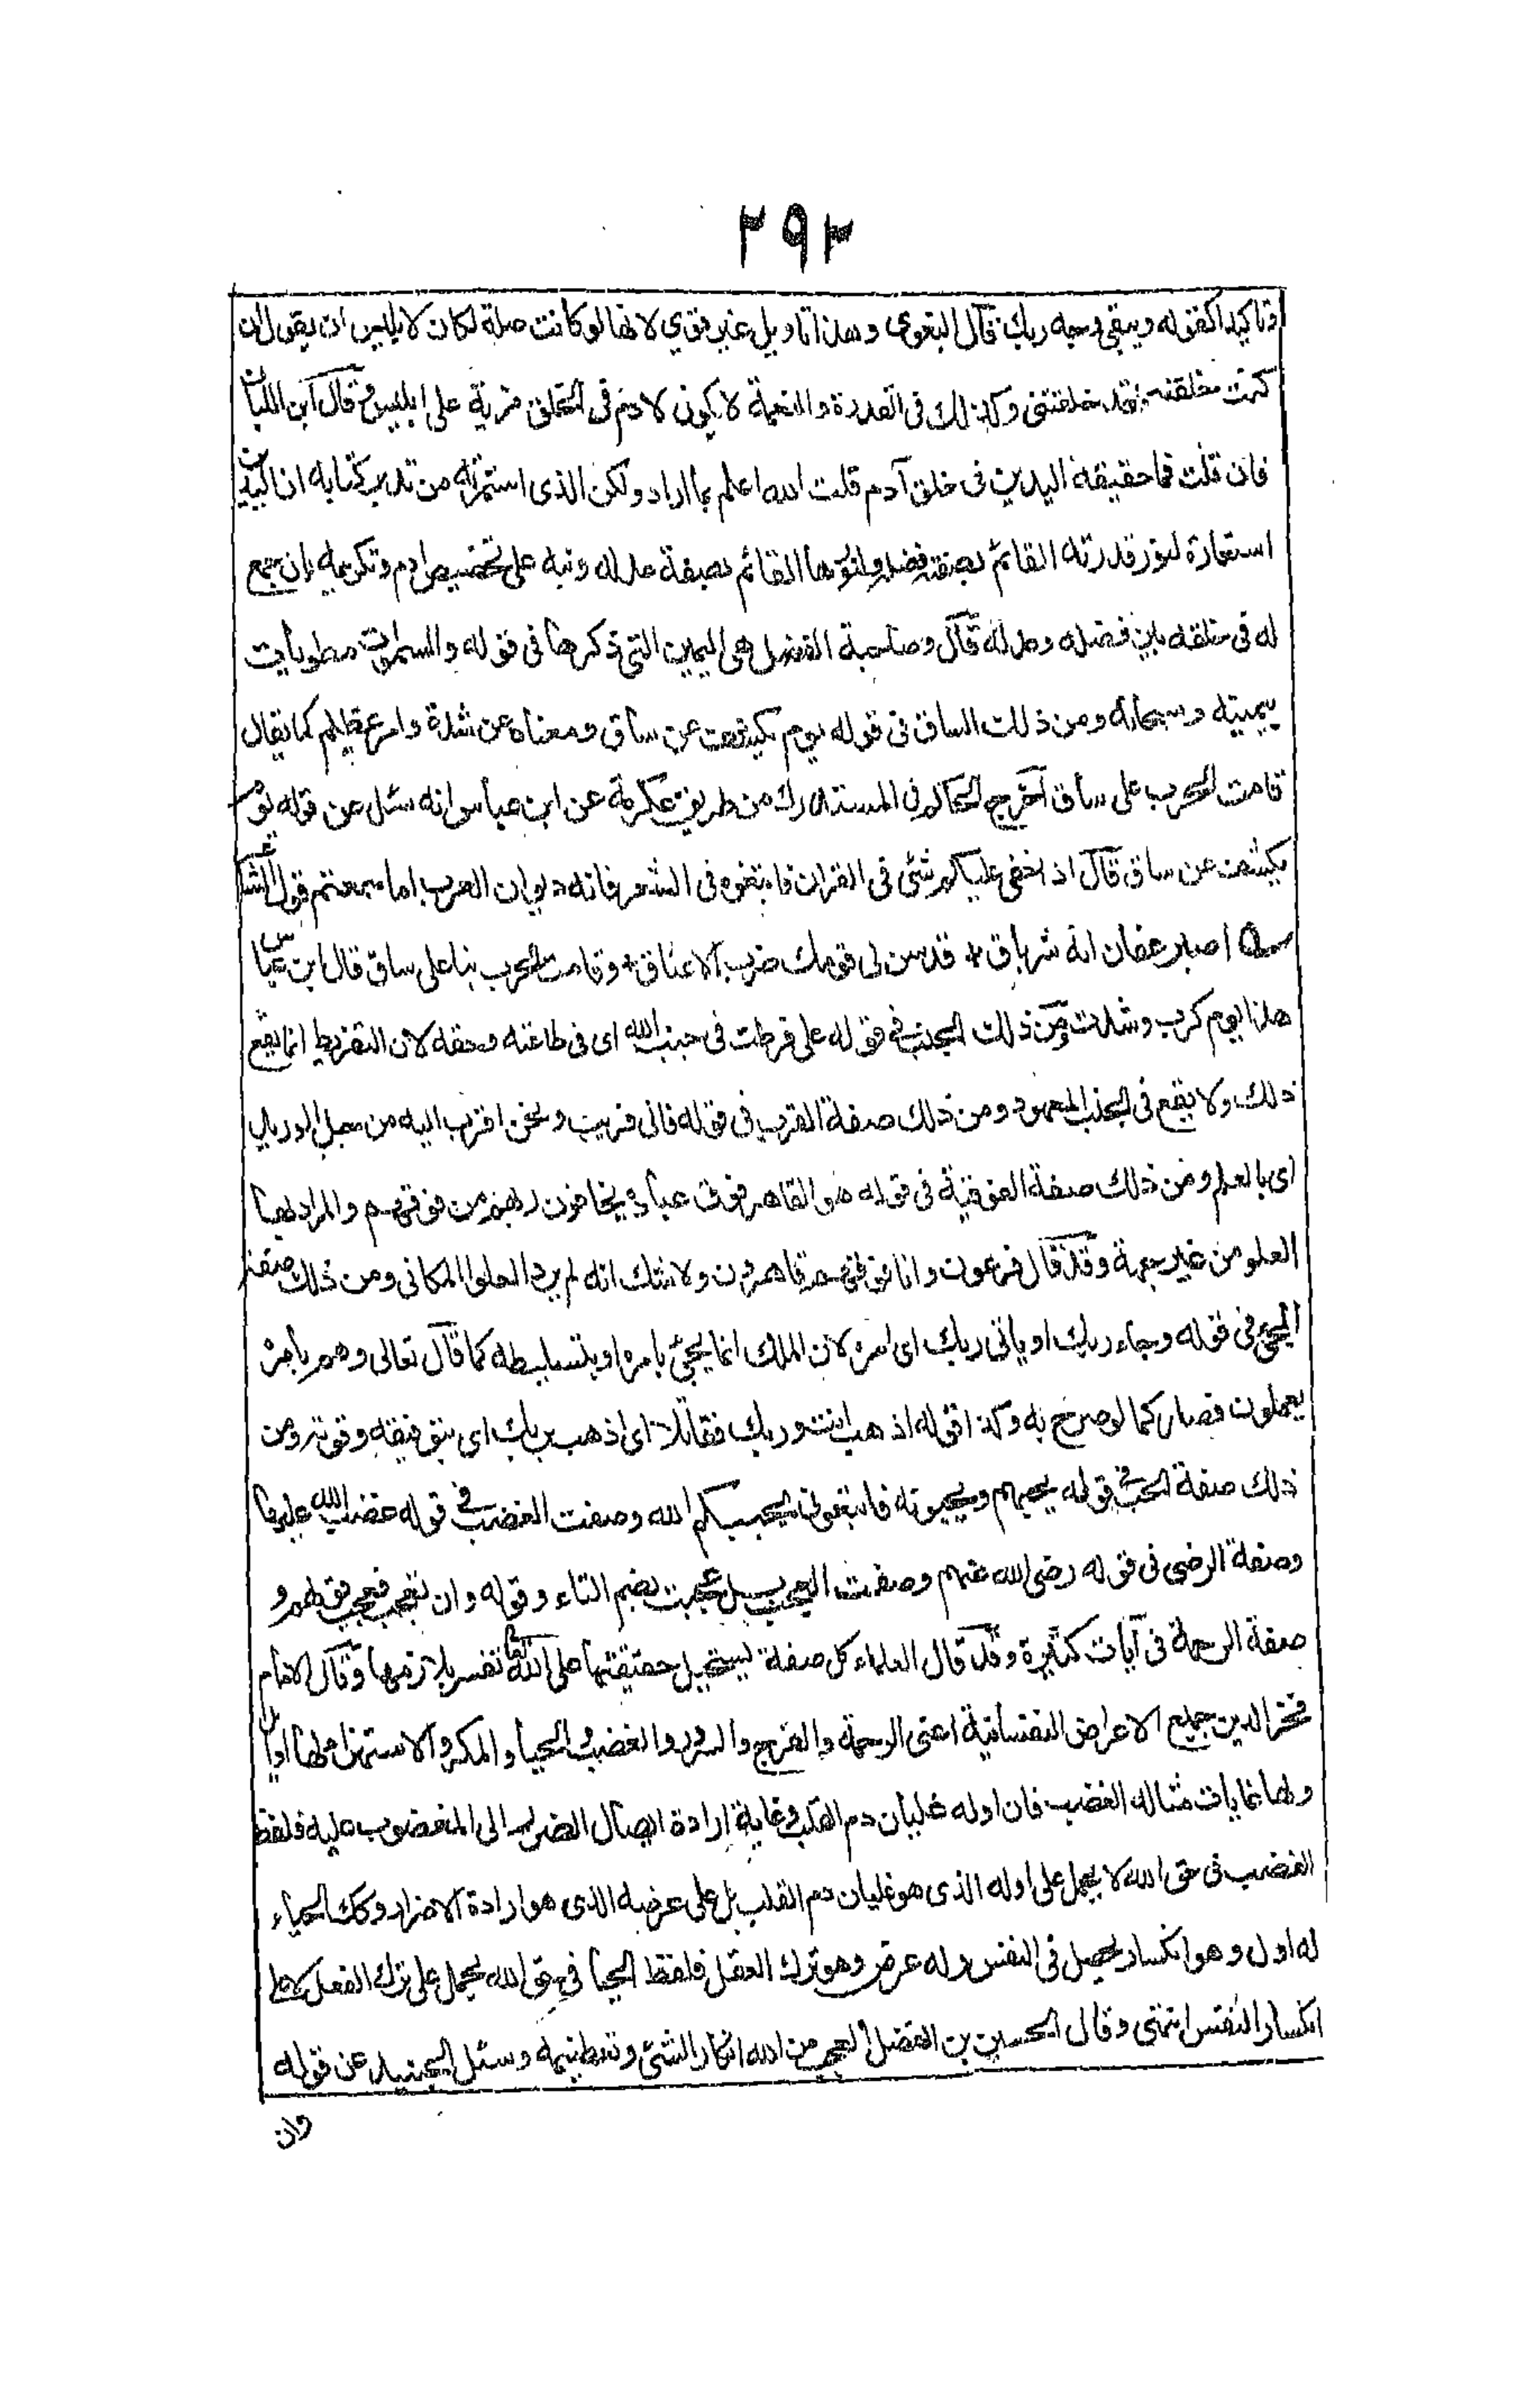 ٢٩٢
وتاكيدا كقوله ويبقى وجه ربك قال البغوى وهذا تاويل غير قوي لانها لو كانت صلة لكان لابليس ان يقول ان
كنت خلقته فقد خلقتنى وكذلك فى القدرة والنعمة لا يكون لادم فى الخلق مزية على ابليس وقال ابن اللبان
فان قلت فما حقيقة اليدين فى خلق آدم قلت الله اعلم بما اراد ولكن الذى استثمرته من تدبر كتابه ان اليدين
استعارة لنور قدرته القائم بصفة فضله ولنورها القائم بصفة عدله ونبه على تخصيص ادم وتكريمه بان جمع
له فى خلقه بين فضله وعدله قال وصاحبة الفضل هى اليمين التى ذكرها فى قوله والسموات مطويات
بيمينه وسبحانه ومن ذلك الساق فى قوله يوم يكشف عن ساق ومعناه عن شدة وامر عظيم كما يقال
قامت الحرب على ساق اخرج الحاكم فى المستدرك من طريق عكرمة عن ابن عباس انه سئل عن قوله يوم
يكشف عن ساق قال اذا خفى عليكم شئ فى القران فابتغوه فى الشعر فانه ديوان العرب اما سمعتم قول الشاعر
اصبر عفان انه شر باق + قد سن لى قومك ضرب الاعناق + وقامت الحرب بنا على ساق قال ابن عباس
هذا يوم كرب وشدة ومن ذلك الجنب فى قوله على فرطت فى جنب الله اى فى طاعته وحقه لان التفريط انما يقع
ذلك ولا يقع فى الجنب المعهود ومن ذلك صفة القرب فى قوله فانى قريب ونحن اقرب اليه من حبل الوريد
اى بالعلم ومن ذلك صفة الفوقية فى قوله هو القاهر فوق عباده يخافون ربهم من فوقهم والمراد بها
العلو من غير جهة وقد قال فرعون وانا فوقهم قاهرون ولا شك انه لم يرد العلو المكانى ومن ذلك صفة
المجئ فى قوله وجاء ربك او ياتى ربك اى امره لان الملك انما يجئ بامره او بتسليطه كما قال تعالى وهم بامره
يعملون فصار كما لو صرح به وكذا قوله اذهب انت وربك فقاتلا اى اذهب بربك اى بتوفيقه وقوته ومن
ذلك صفة الحب فى قوله يحبهم ويحبونه فاتبعونى يحببكم الله وصفت الغضب فى قوله غضب الله عليها
وصفة الرضى فى قوله رضى الله عنهم وصفت العجب بل عجبت بضم التاء وقوله وان تعجب فعجب قولهم و
صفة الرحمة فى آيات كثيرة وقد قال العلماء كل صفة يستحيل حقيقتها على الله تعا تفسر بلازمها وقال الامام
فخر الدين جميع الاعراض النفسانية اعنى الرحمة والفرح والسرور والغضب والحيا والمكر والاستهزاء لها اوائل
ولها غايات مثاله الغضب فان اوله غليان دم القلب وغاية ارادة ايصال الضرر الى المغضوب عليه فلفظ
الغضب فى حق الله لا يحمل على اوله الذى هو غليان دم القلب بل على عرضه الذى هو ارادة الاضرار وكك الحياء
له اول وهو انكسار يحصل فى النفس وله عرض وهو ترك الفعل فلفظ الحيا فى حق الله يحمل على ترك الفعل لا على
انكسار النفس انتهى وقال الحسين بن الفضل العجب من الله انكار الشئ وتعظيمه وسئل الجنيد عن قوله
وان